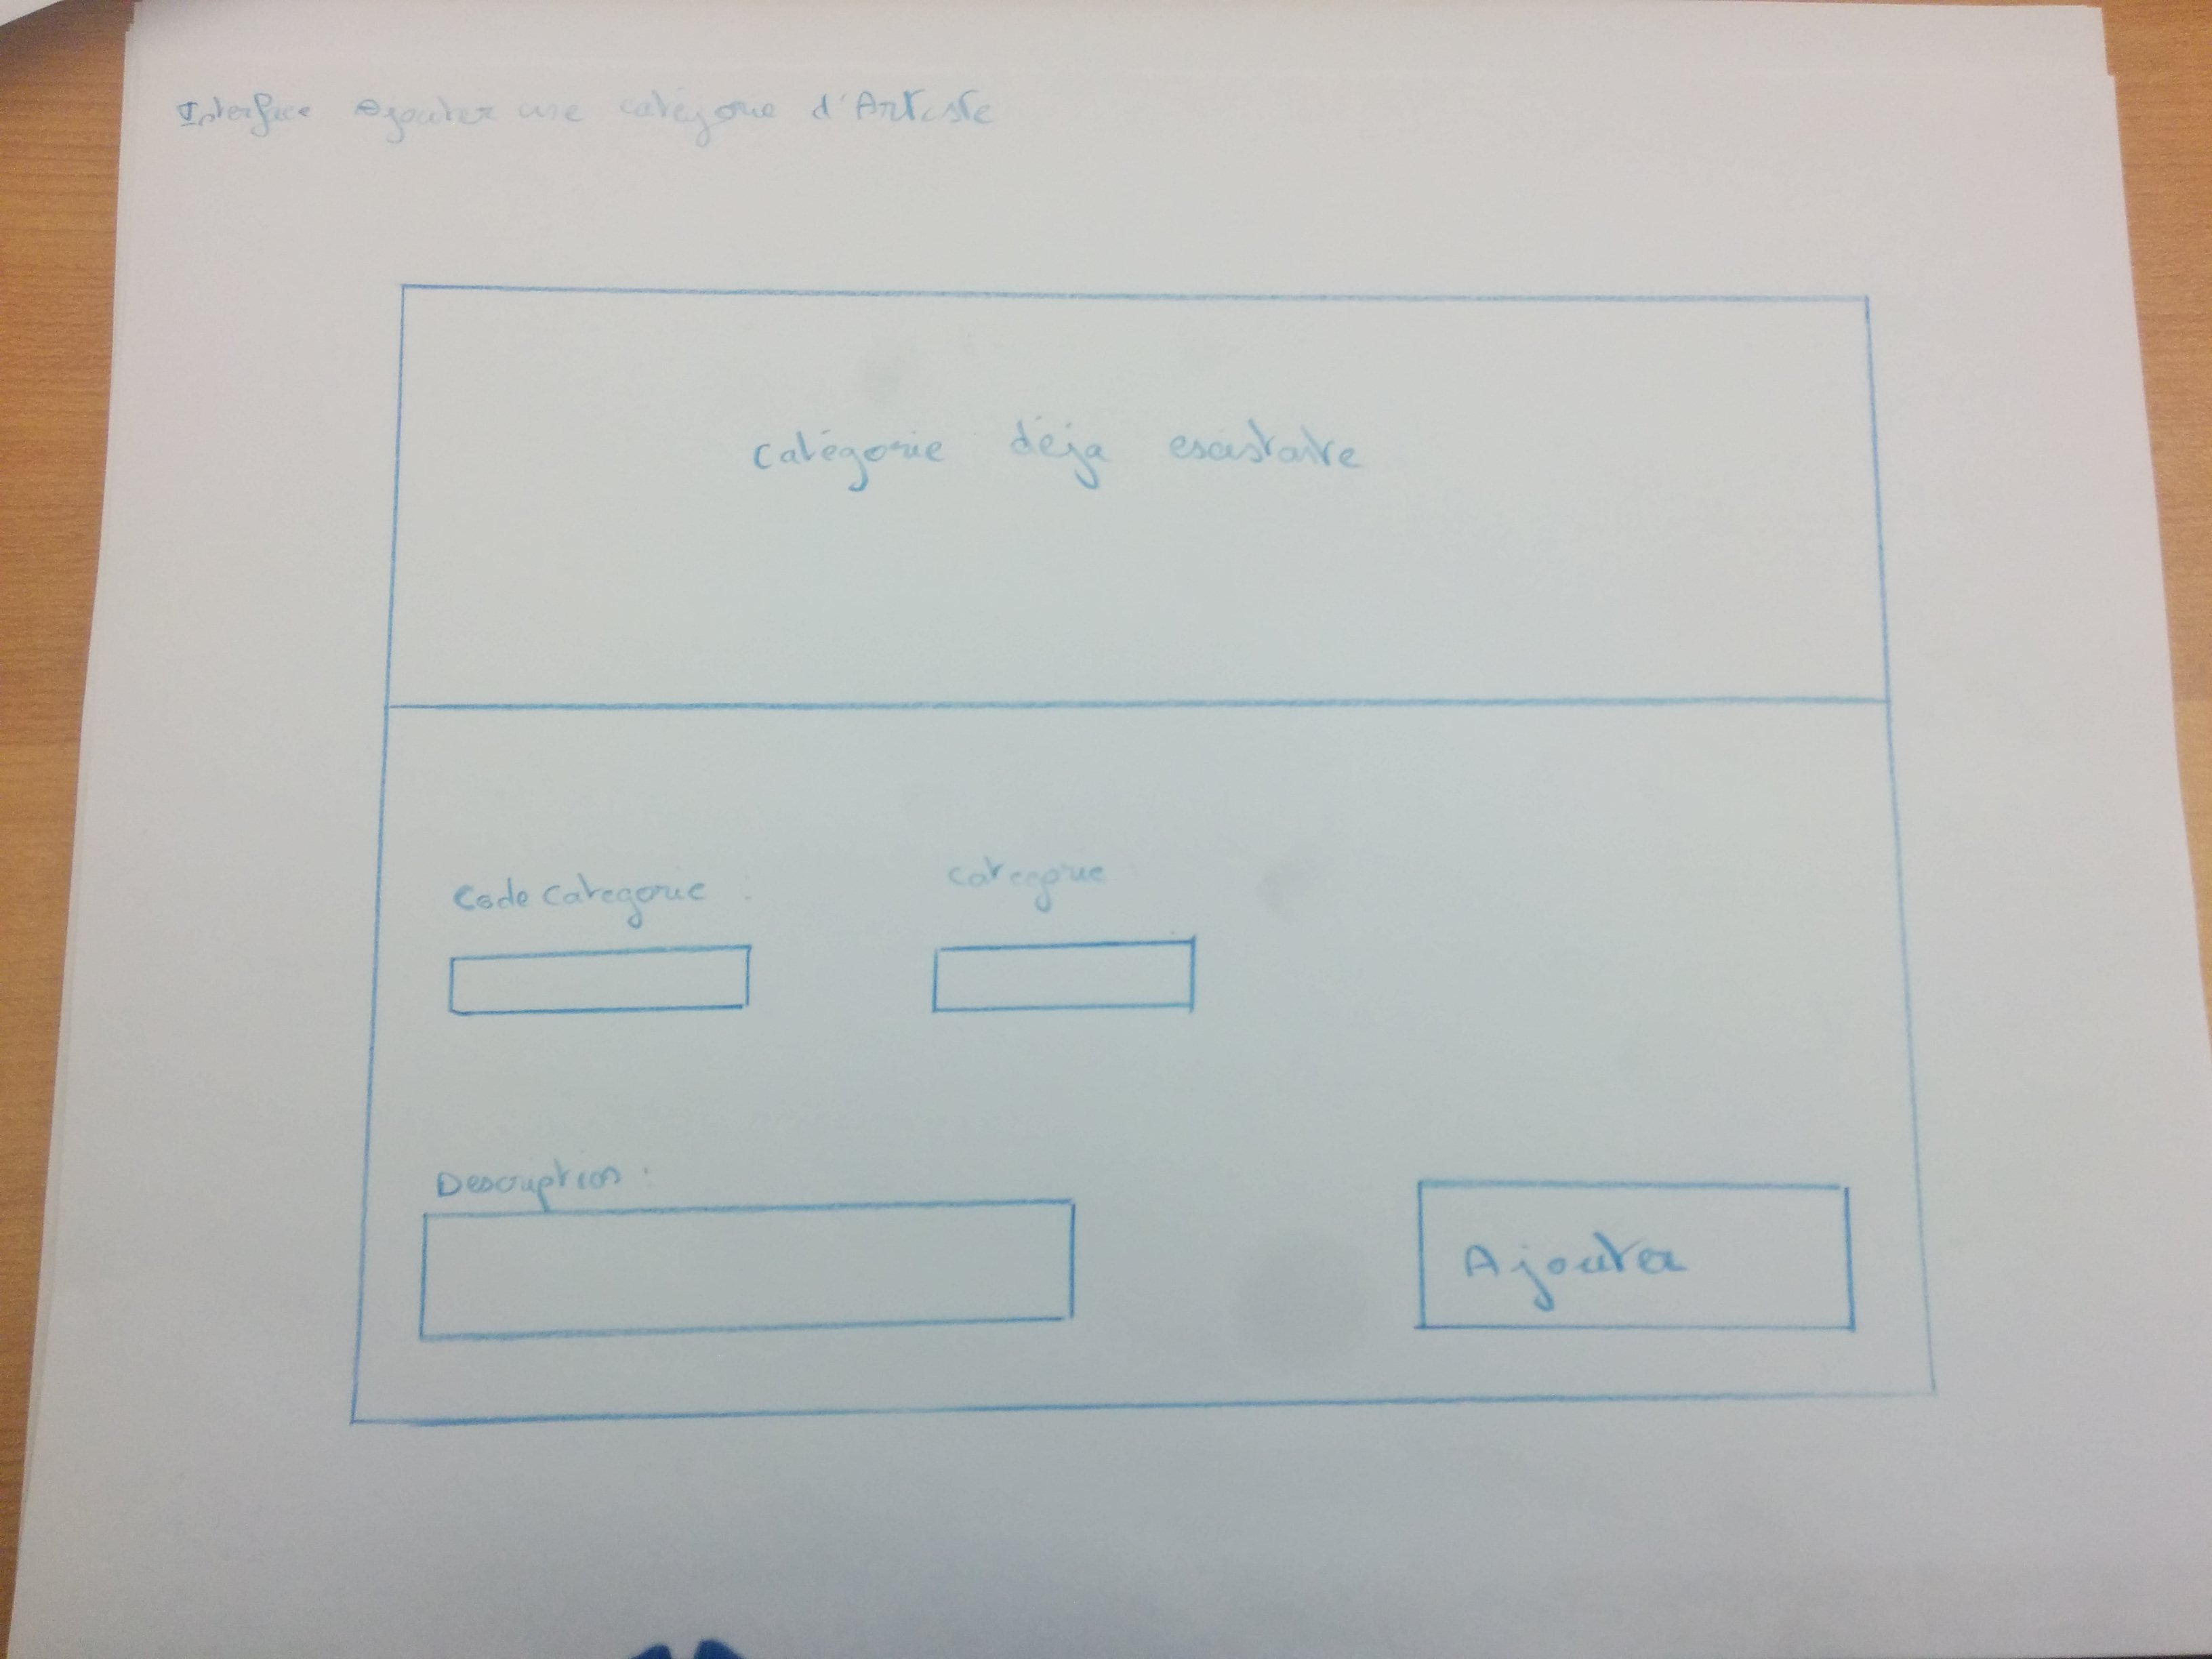 Interface Ajouter une catégorie d'Artiste
catégorie déja existante
Code Categorie :
Categorie :
Description :
Ajouter